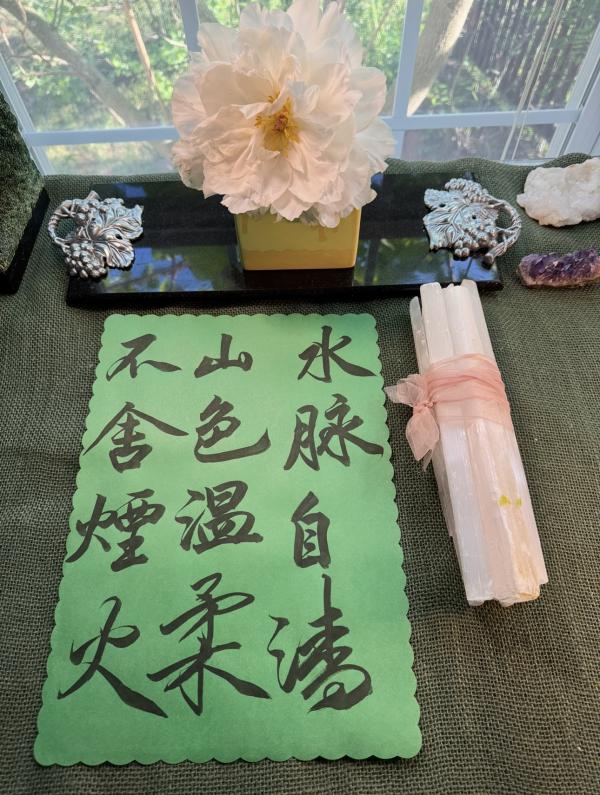 水脉自清
山色温柔
不舍煙火